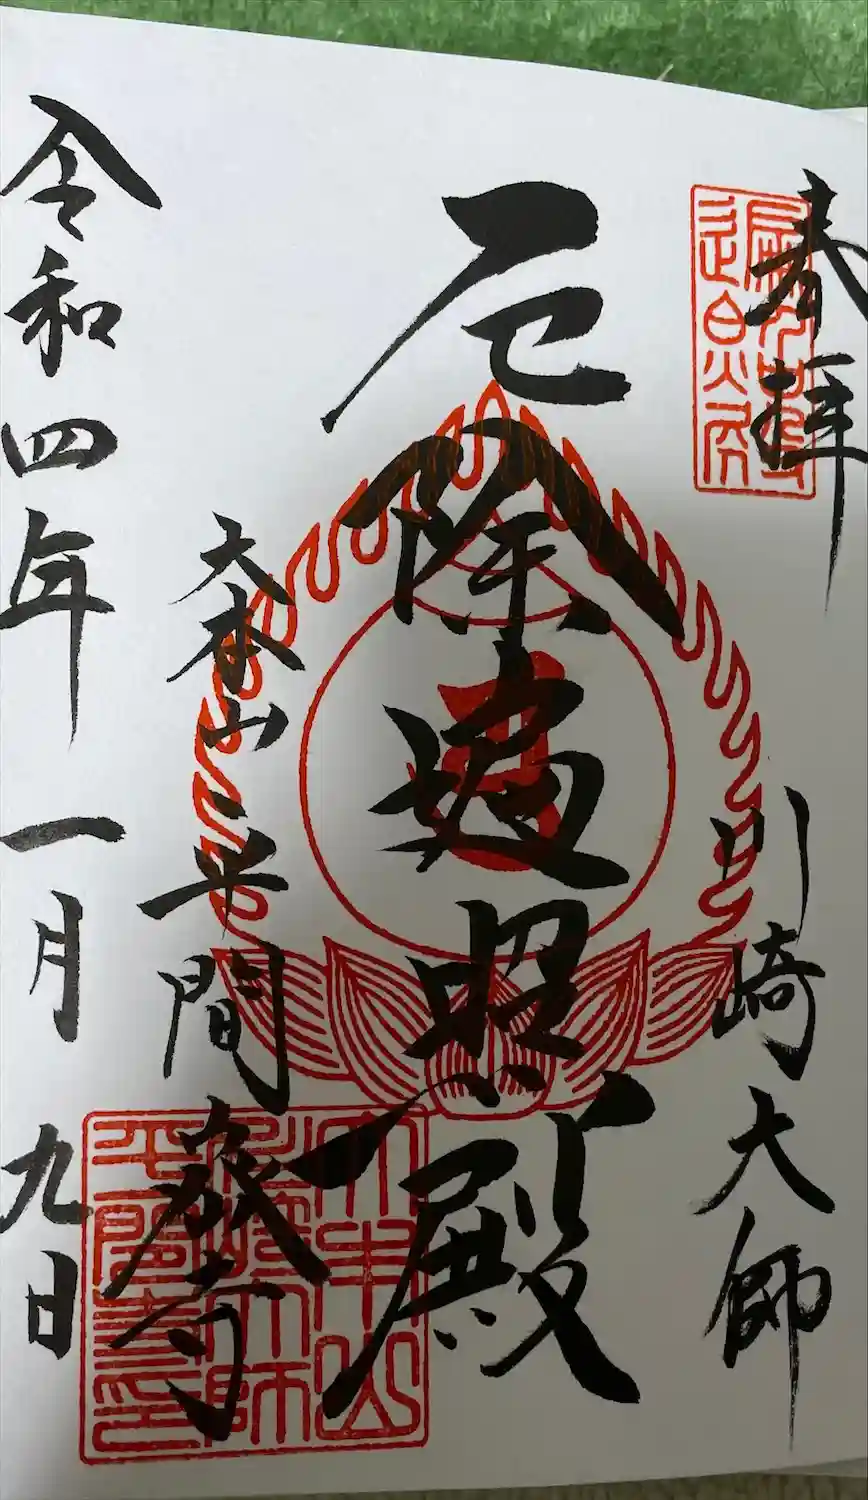 奉拝
川崎大師
厄除遍照殿
大本山
平間寺
令和四年一月九日
大本山
川崎大師
平間寺印